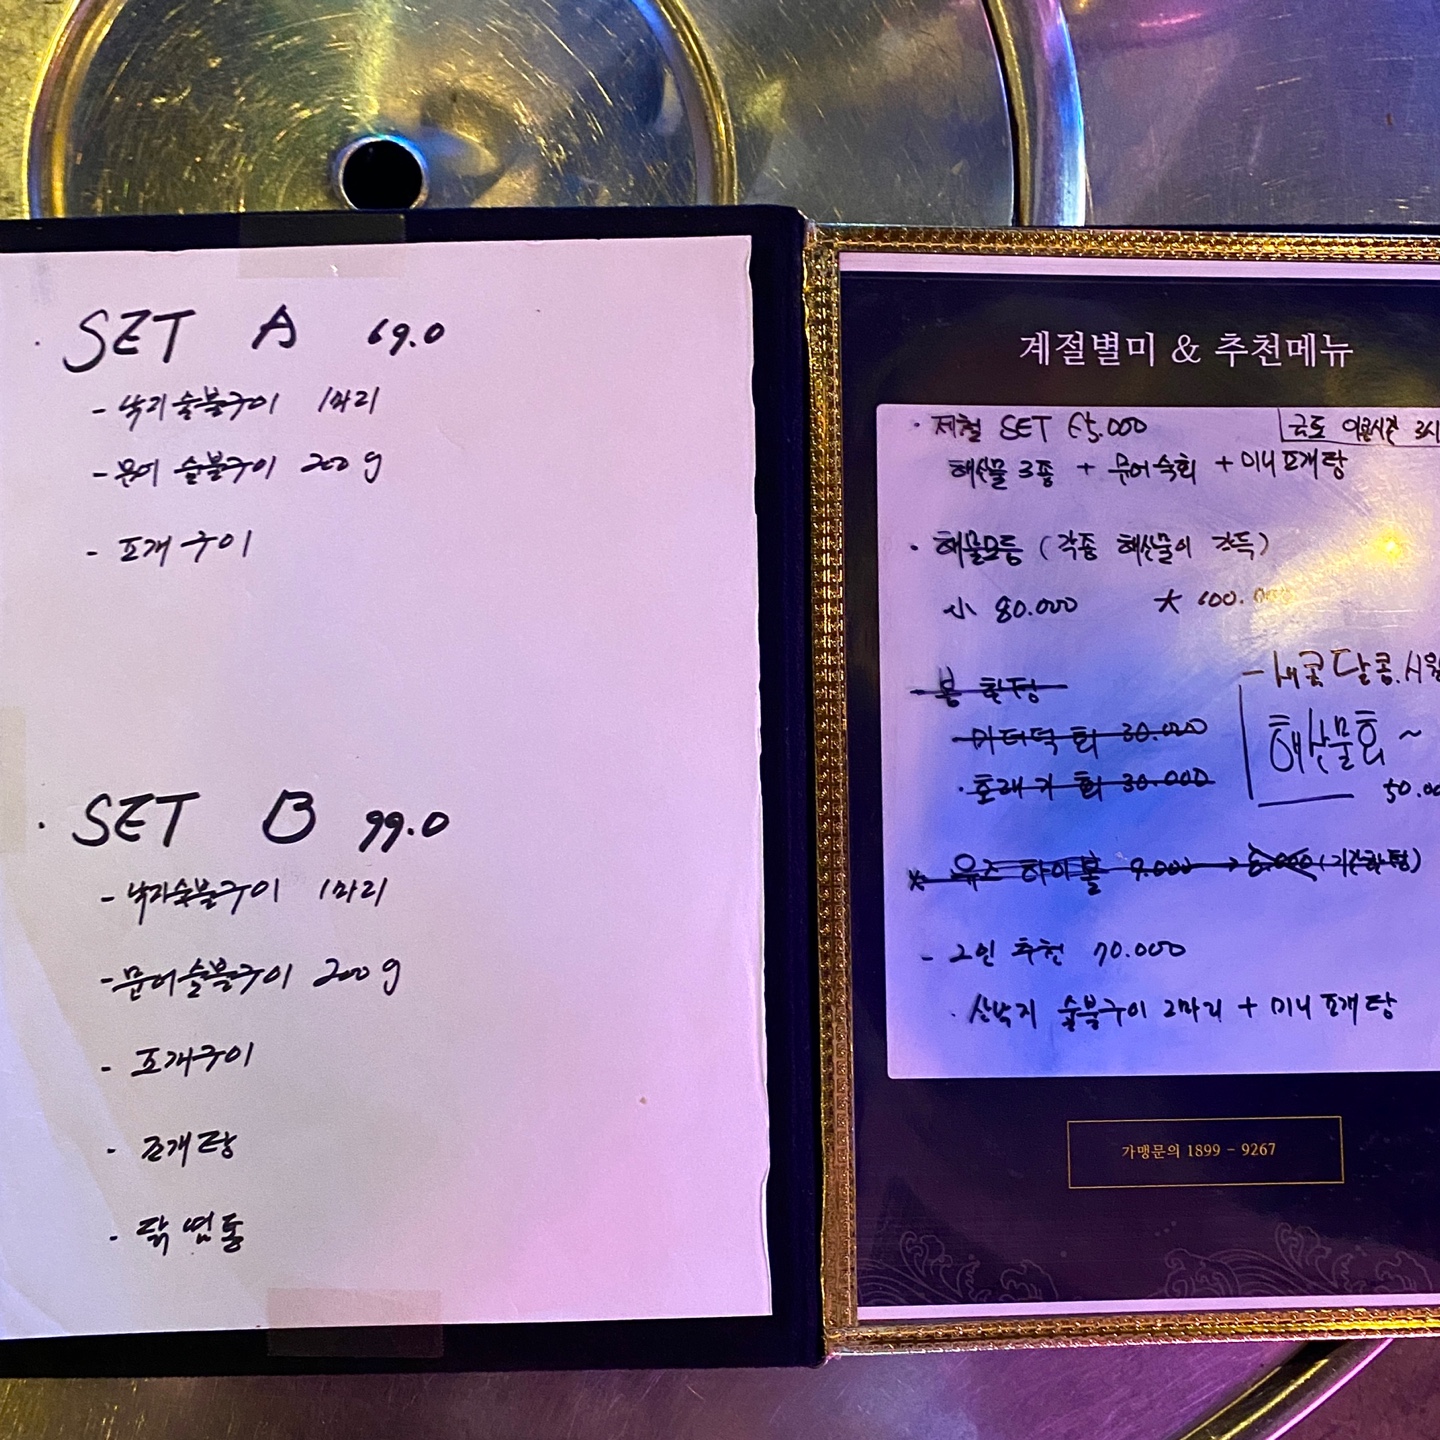 · SET A 69.0
- 낙지숯불구이 1마리
- 문어 숯불구이 200g
- 조개구이
· SET B 99.0
- 낙지숯불구이 1마리
- 문어숯불구이 200g
- 조개구이
- 조개탕
- 닭염통
계절별미 & 추천메뉴
· 제철 SET 65.000
금토 이용시간 3시
해산물 3종 + 문어숙회 + 미니조개탕
· 해물모듬 (각종 해산물이 가득)
小 80.000 大 100.000
봄 한정
- 미더덕 회 30.000
· 호래기 회 30.000
- 새꼬달콤
해산물회 ~
50.00
※ 유즈 하이볼 9.000 → 6.000 (기간한정)
- 2인 추천 70.000
· 산낙지 숯불구이 2마리 + 미니조개탕
가맹문의 1899 - 9267